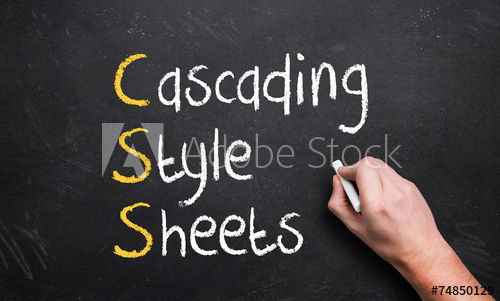 Cascading
Style
Sheets
Adobe Stock
#74850129